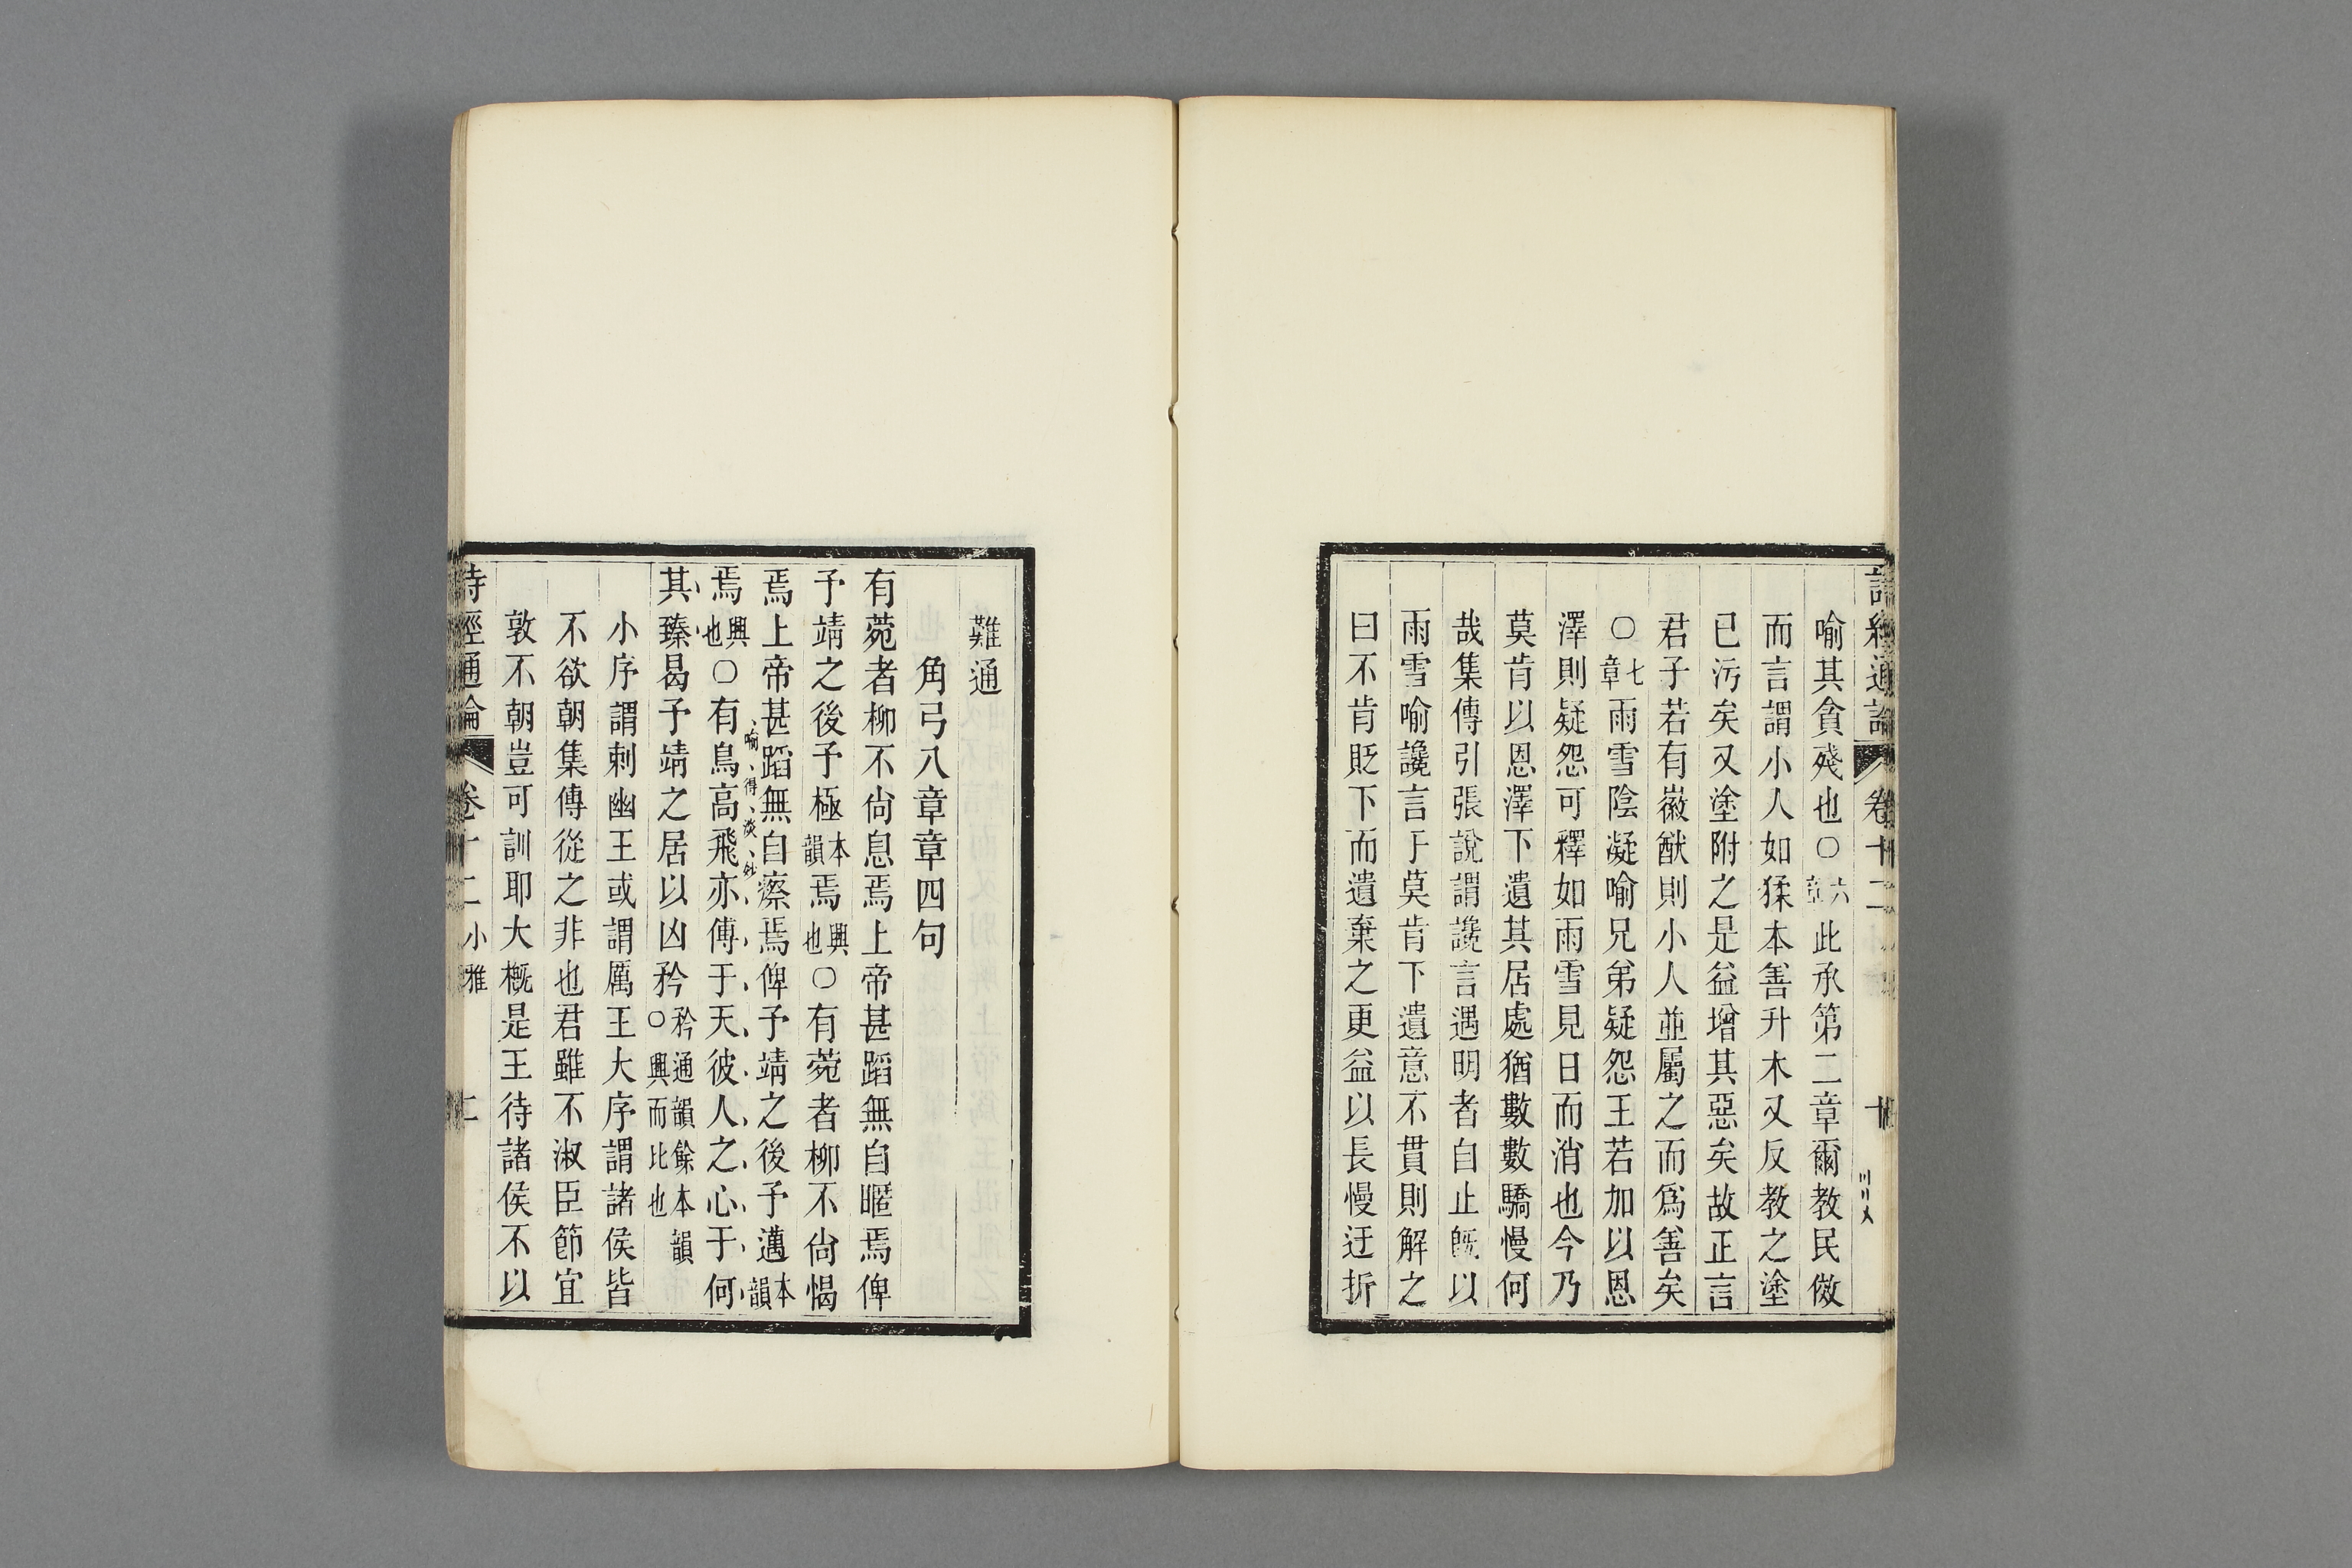 詩經通論 卷十二 十
喻其貪殘也○六章此承第二章爾教民傚
而言謂小人如猱本善升木又反教之塗
已污矣又塗附之是益增其惡矣故正言
君子若有徽猷則小人並屬之而爲善矣
○七章雨雪陰凝喻兄弟疑怨王若加以恩
澤則疑怨可釋如雨雪見日而消也今乃
莫肯以恩澤下遺其居處猶數數驕慢何
哉集傳引張說謂讒言遇明者自止旣以
雨雪喻讒言于莫肯下遺意不貫則解之
曰不肯貶下而遺棄之更益以長慢迂折
難通
角弓八章章四句
有菀者柳不尙息焉上帝甚蹈無自暱焉俾
予靖之後予極本韻焉興也○有菀者柳不尙愒
焉上帝甚蹈無自瘵焉俾予靖之後予邁本韻
喻得淡妙
焉興也○有鳥高飛亦傅于天彼人之心于何
其臻曷予靖之居以凶矜矜通韻餘本韻○興而比也
小序謂刺幽王或謂厲王大序謂諸侯皆
不欲朝集傳從之非也君雖不淑臣節宜
敦不朝豈可訓耶大槪是王待諸侯不以
詩經通論 卷十二 小雅